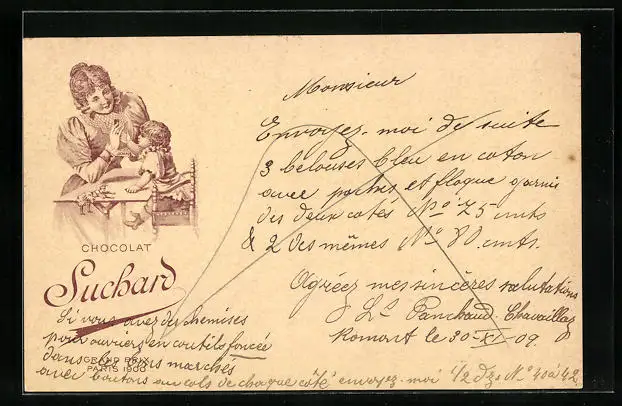 Monsieur
Envoyez-moi de suite
3 belouses bleu en coton
avec poches et floque garnis
des deux cotés No 75 cmts
& 2 des mêmes No 80 cmts.
Agréez mes sincères salutations
Ls Panchaud Chavaillaz
Romont le 30-XI-09.
CHOCOLAT
Suchard
GRAND PRIX
PARIS 1900
Si vous avez des chemises
pour ouvriers en coutils foncée
dans les bons marchés
avec boutons au cols de chaque côté envoyez-moi 1/2 dz No 40 à 42